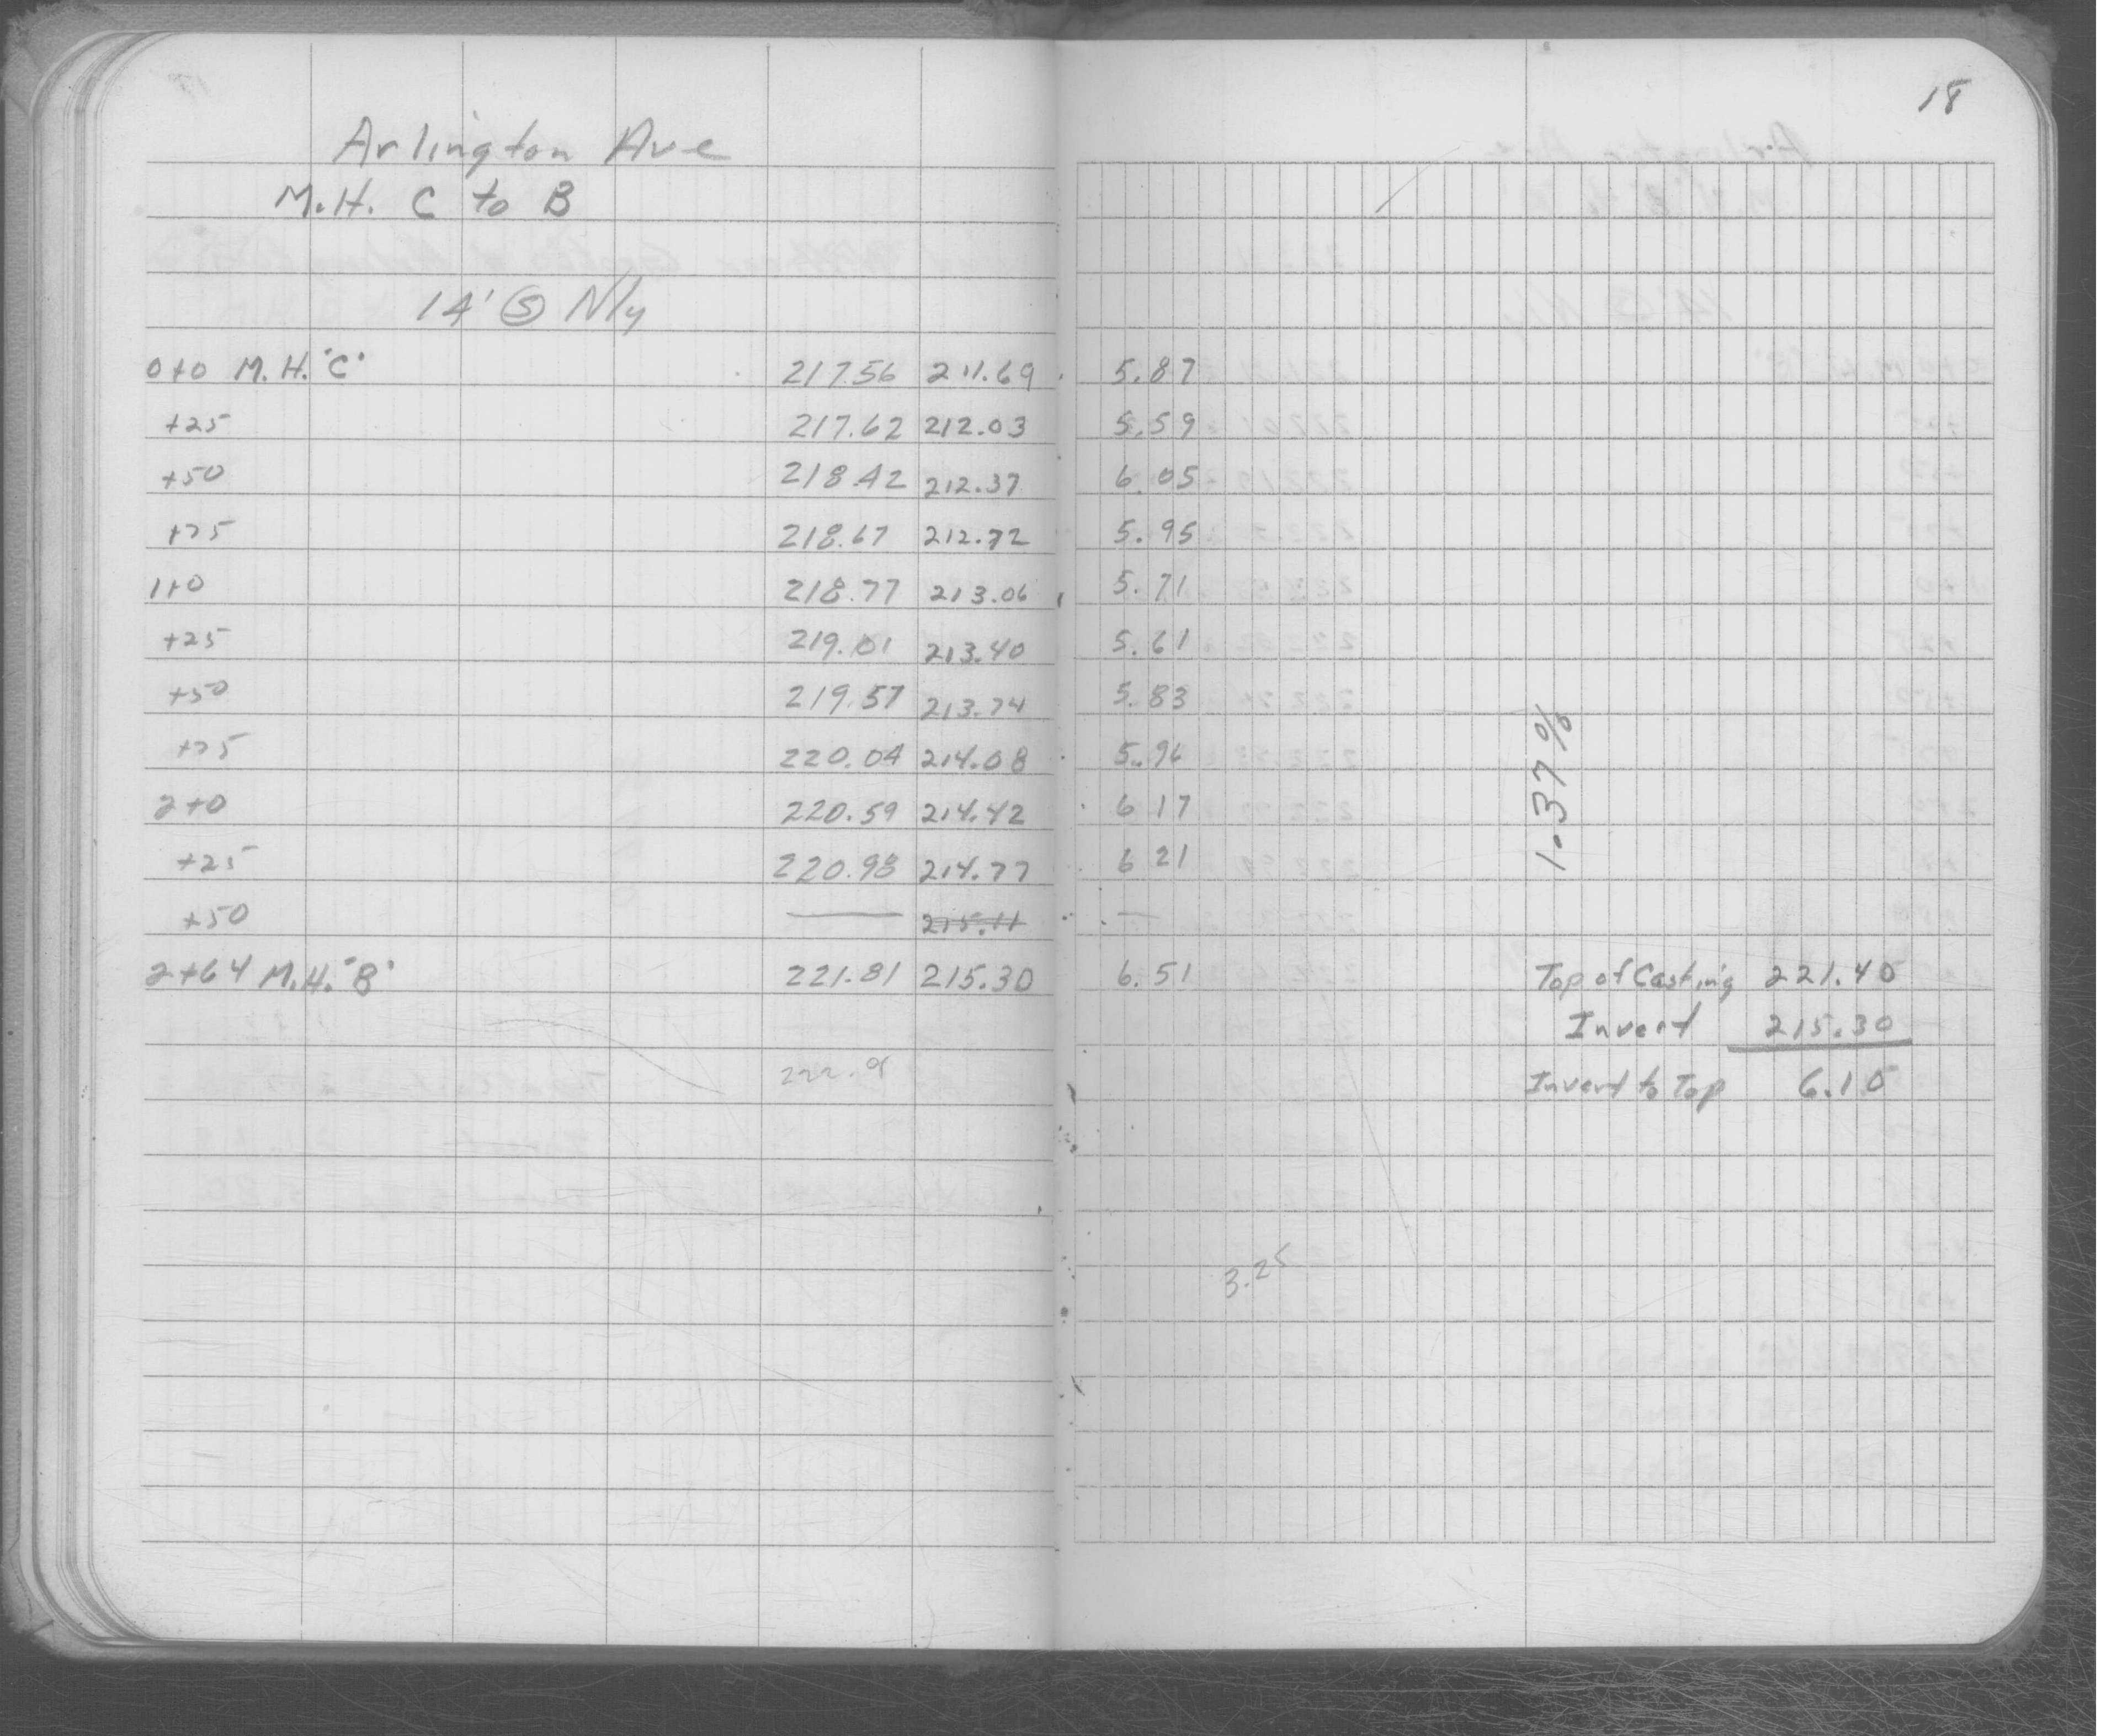 18
Arlington Ave
M.H. C to B
14' Ⓢ Nly
0+0 M.H. "C" 217.56 211.69 5.87
+25 217.62 212.03 5.59
+50 218.42 212.37 6.05
+75 218.67 212.72 5.95
1+0 218.77 213.06 5.71
+25 219.01 213.40 5.61
+50 219.57 213.74 5.83
+75 220.04 214.08 5.96
2+0 220.59 214.42 6 17
+25 220.98 214.77 6 21
+50 — 215.11 —
2+64 M.H. "B" 221.81 215.30 6.51
1.37%
Top of Casting 221.40
Invert 215.30
Invert to Top 6.10
3.25